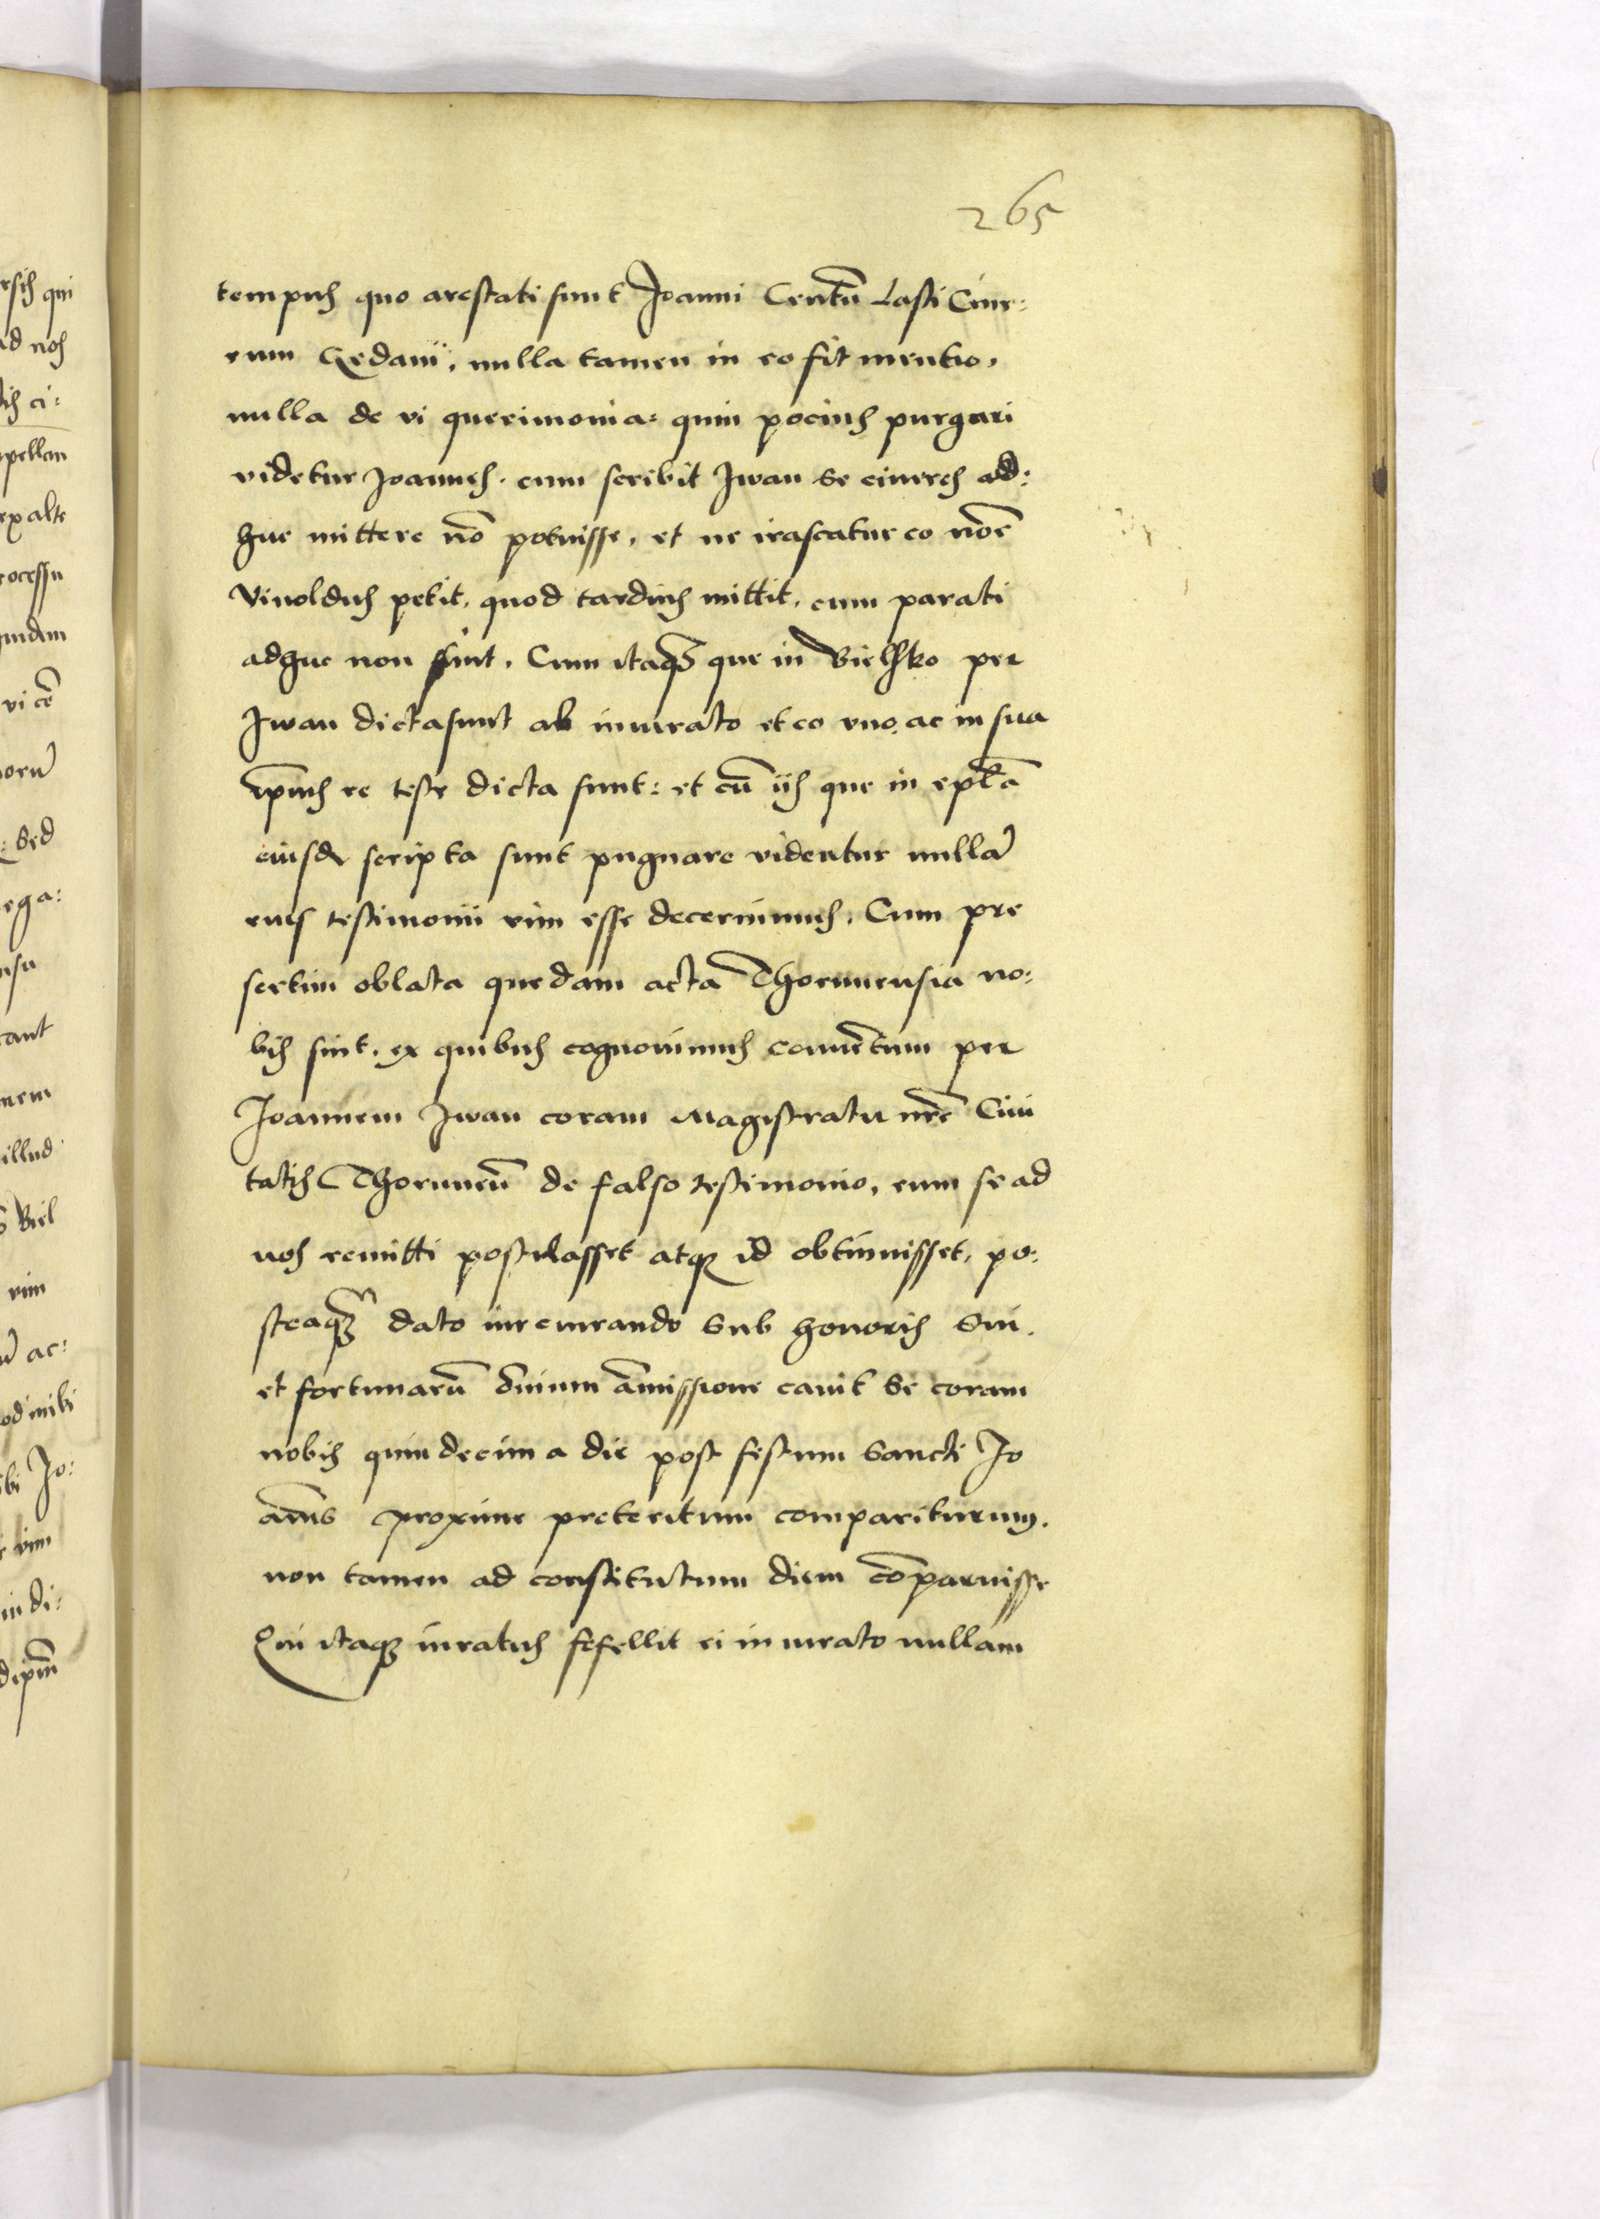 265
tempus quo arestati sunt Joanni Centū Lasti Cine-
rum Gedanii, nulla tamen in eo fit mentio,
nulla de vi querimonia: quin pocius purgari
videtur Joannes. cum scribit Iwan se cineres ad:
huc mittere nō potuisse, et ne irascatur eo noīe
Vinoldus petit, quod tardius mittit, cum parati
adhuc non sint. Cum itaqȝ que in Bielsko per
Iwan dicta sunt ab iniurato et eo vno, ac in sua
ipsius re teste dicta sunt: et cū iis que in epl̄a
eiusdē scripta sunt pugnare videntur nullā
eius testimonii vim esse decernimus. Cum pre
sertim oblata quedam acta Thorunensia no:
bis sint, ex quibus cognouimus conuētum per
Joannem Iwan coram Magistratu nr̄e Ciui
tatis Thorunen̄ de falso testimonio, cum se ad
nos remitti postulasset atqȝ id obtinuisset, po:
steaqȝ dato iureiurando sub honoris sui,
et fortunarū om̄ium am̄issione cauit se coram
nobis quindecim a die post festum Sancti Jo
an̄is proxime preteritum compariturum,
non tamen ad constitutum diem cōparuisse
Qui itaqȝ iuratus fefellit ei iniurato nullam
qui
ad nos
ci:
vi
Sed
ega:
cant
nem
illud
Biel
vim
ac:
Jo:
vim
in di: